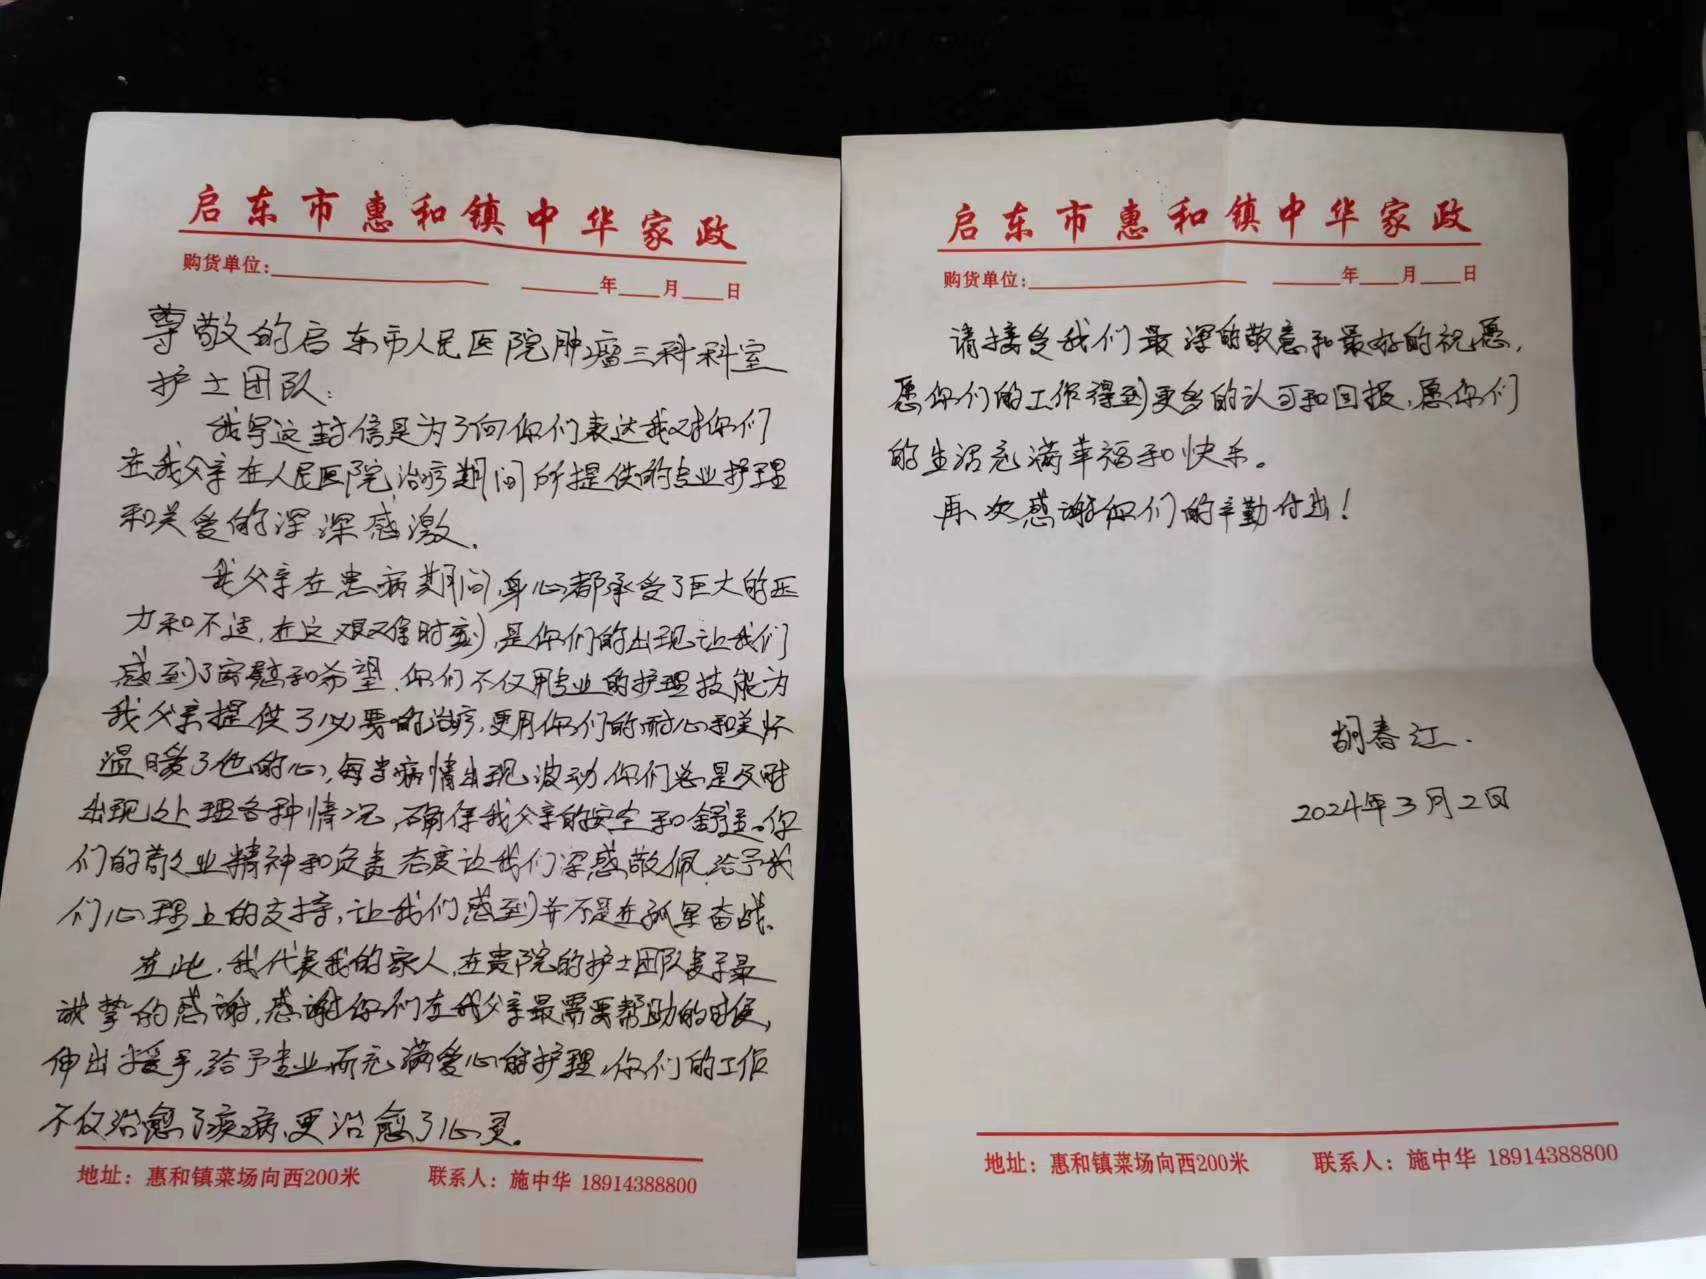 启东市惠和镇中华家政
购货单位：＿＿＿＿ ＿＿年＿＿月＿＿日
尊敬的启东市人民医院肿瘤三科科室
护士团队：
我写这封信是为了向你们表达我对你们
在我父亲在人民医院治疗期间所提供的专业护理
和关爱的深深感激．
我父亲在患病期间，身心都承受了巨大的压
力和不适，在这艰难时刻，是你们的出现让我们
感到了安慰和希望．你们不仅用专业的护理技能为
我父亲提供了必要的治疗，更用你们的耐心和关怀
温暖了他的心，每当病情出现波动，你们总是及时
出现处理各种情况，确保我父亲的安全和舒适。你
们的敬业精神和负责态度让我们深感敬佩，给予我
们心理上的支持，让我们感到并不是在孤军奋战。
在此，我代表我的家人，在贵院的护士团队表示最
诚挚的感谢，感谢你们在我父亲最需要帮助的时候，
伸出援手，给予专业而充满爱心的护理，你们的工作
不仅治愈了疾病，更治愈了心灵。
地址：惠和镇菜场向西200米 联系人：施中华 18914388800
启东市惠和镇中华家政
购货单位：＿＿＿＿ ＿＿年＿＿月＿＿日
请接受我们最深的敬意和最好的祝愿，
愿你们的工作得到更多的认可和回报，愿你们
的生活充满幸福和快乐。
再次感谢你们的辛勤付出！
胡春江．
2024年3月2日
地址：惠和镇菜场向西200米 联系人：施中华 18914388800